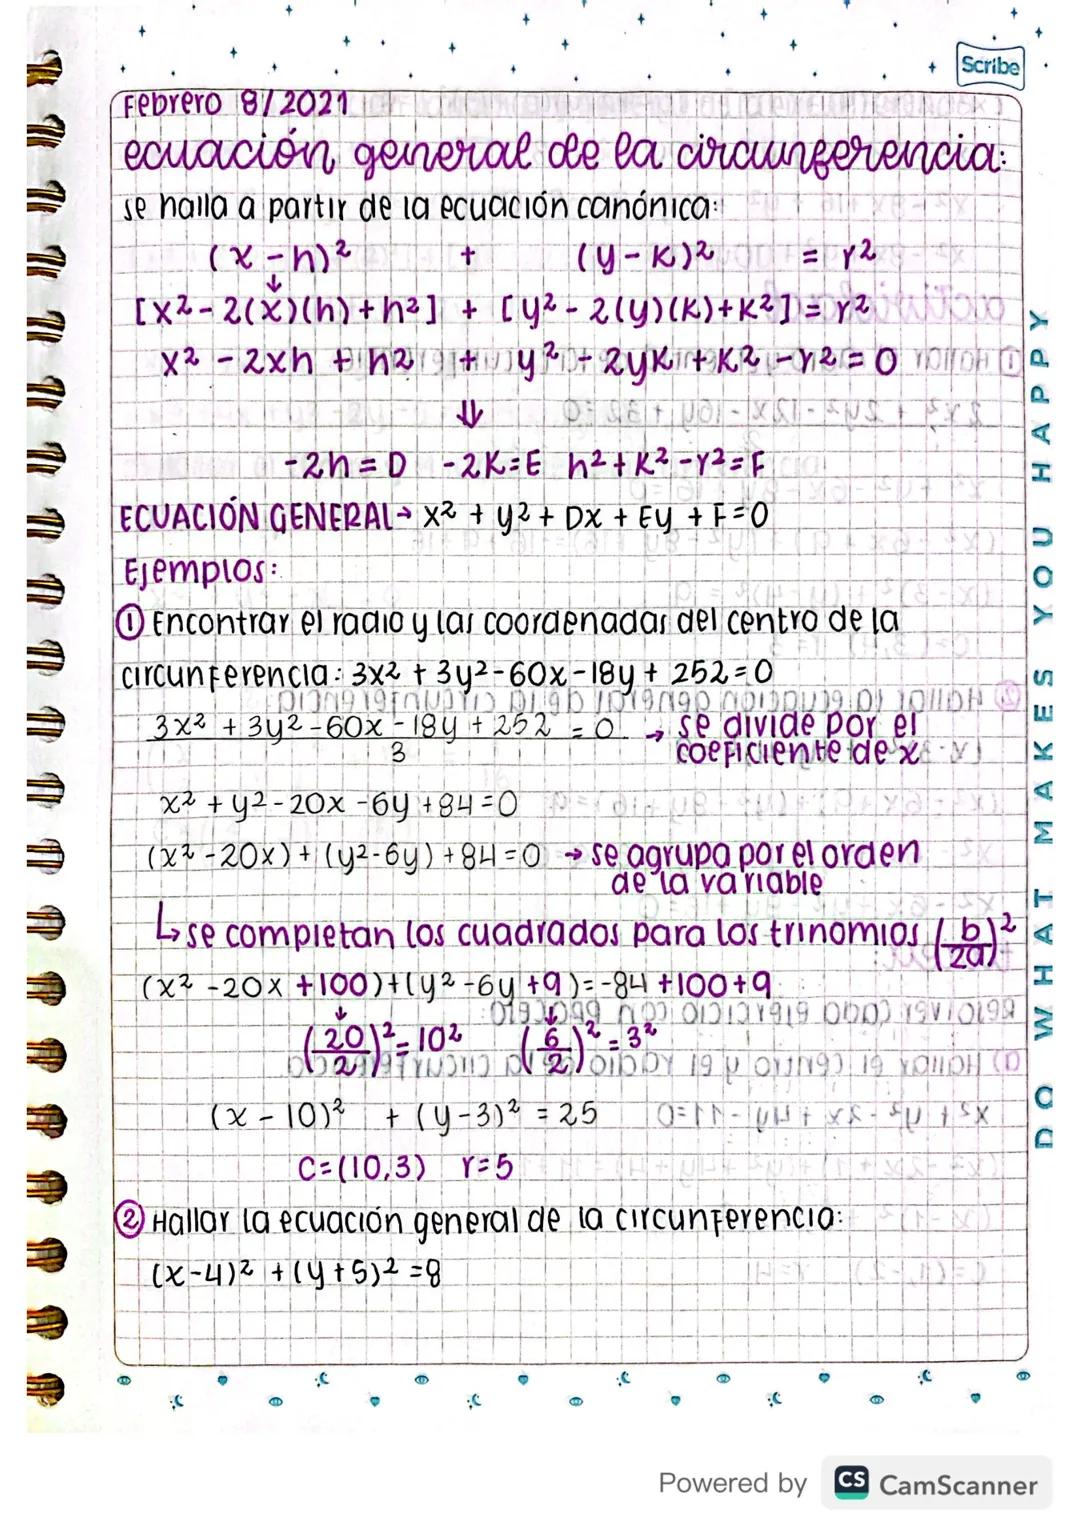 Scribe
Febrero 8/2021
ecuación general de la circunferencia:
se halla a partir de la ecuación canónica:
(x-h)² + (y-k)² = r²
↓
[x²-2(x)(h)+h²] + [y²-2(y)(k)+k²]=r²
x² -2xh + h2 + y² - 2yk + k² -r²=0
⇓
-2h=D -2k=E h²+k²-r²=F
ECUACIÓN GENERAL→ x² + y² + Dx + Ey + F=0
Ejemplos:
① Encontrar el radio y las coordenadas del centro de la
circunferencia: 3x² + 3y²-60x-18y + 252=0
3x² + 3y²-60x-18y + 252 = 0 → se divide por el
3 coeficiente de x
x² + y²-20x-6y+84=0
(x²-20x)+(y²-6y)+84=0 → se agrupa por el orden
de la variable
↳ se completan los cuadrados para los trinomios (b/2a)²
(x²-20x+100)+(y²-6y+9)=-84+100+9
↓ ↓
(20/2)²=10² (6/2)²=3²
(x-10)² + (y-3)² = 25
C=(10,3) r=5
② Hallar la ecuación general de la circunferencia:
(x-4)² + (y+5)² =8
DO WHAT MAKES YOU HAPPY
Powered by CS CamScanner